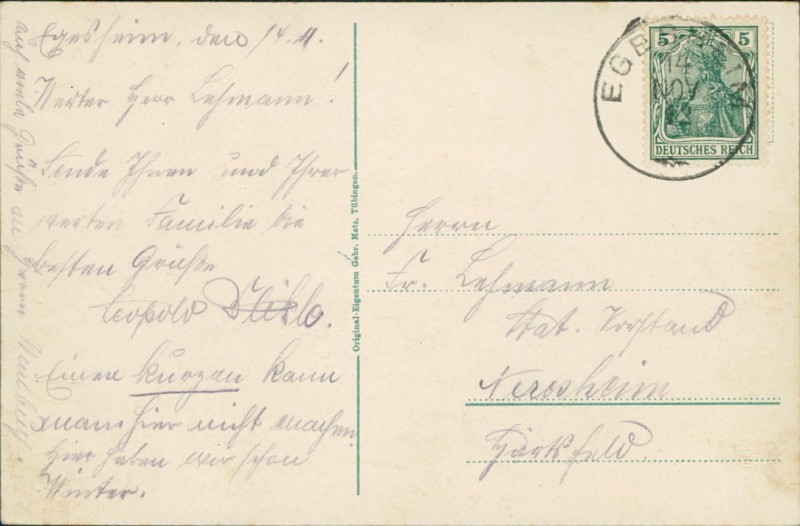 Egesheim, den 14.11.
Werter Herr Lehmann!
Sende Ihnen und Ihrer
werten Familie die
besten Grüße
Leopold
Einen kurzen kann
man hier nicht machen
hier haben wir schon
Winter.
auch viele Grüße an Herrn
Original-Eigentum Gebr. Metz, Tübingen.
5 5
DEUTSCHES REICH
EGESHEIM
14
NOV
12
Herrn
Fr. Lehmann
Stat. Vorstand
Neresheim
Härtsfeld.